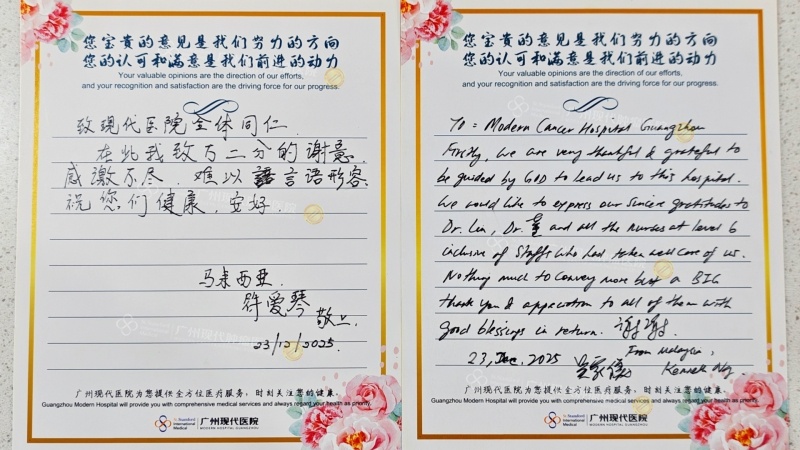 您宝贵的意见是我们努力的方向
您的认可和满意是我们前进的动力
Your valuable opinions are the direction of our efforts,
and your recognition and satisfaction are the driving force for our progress.
致现代医院全体同仁.
在此我致万二分的谢意.
感激不尽, 难以言语形容.
祝您们健康, 安好.
马来西亚.
许爱琴
敬上.
23/12/2025.
广州现代医院为您提供全方位医疗服务，时刻关注您的健康。
Guangzhou Modern Hospital will provide you with comprehensive medical services and always regard your health as priority.
St.Stamford International Medical
广州现代医院
MODERN HOSPITAL GUANGZHOU
您宝贵的意见是我们努力的方向
您的认可和满意是我们前进的动力
Your valuable opinions are the direction of our efforts,
and your recognition and satisfaction are the driving force for our progress.
To = Modern Cancer Hospital Guangzhou
Firstly, we are very thankful & grateful to
be guided by GOD to lead us to this hospital.
We would like to express our sincere gratitudes to
Dr. Lin, Dr. and all the Nurses at level 6
inclusive of Staffs who had taken well care of us.
Nothing much to convey more but a BIG
thank you & appreciation to all of them with
good blessings in return. 谢谢.
23, Dec, 2025
From Malaysia,
Kenneth Ng.
广州现代医院为您提供全方位医疗服务，时刻关注您的健康。
Guangzhou Modern Hospital will provide you with comprehensive medical services and always regard your health as priority.
St.Stamford International Medical
广州现代医院
MODERN HOSPITAL GUANGZHOU